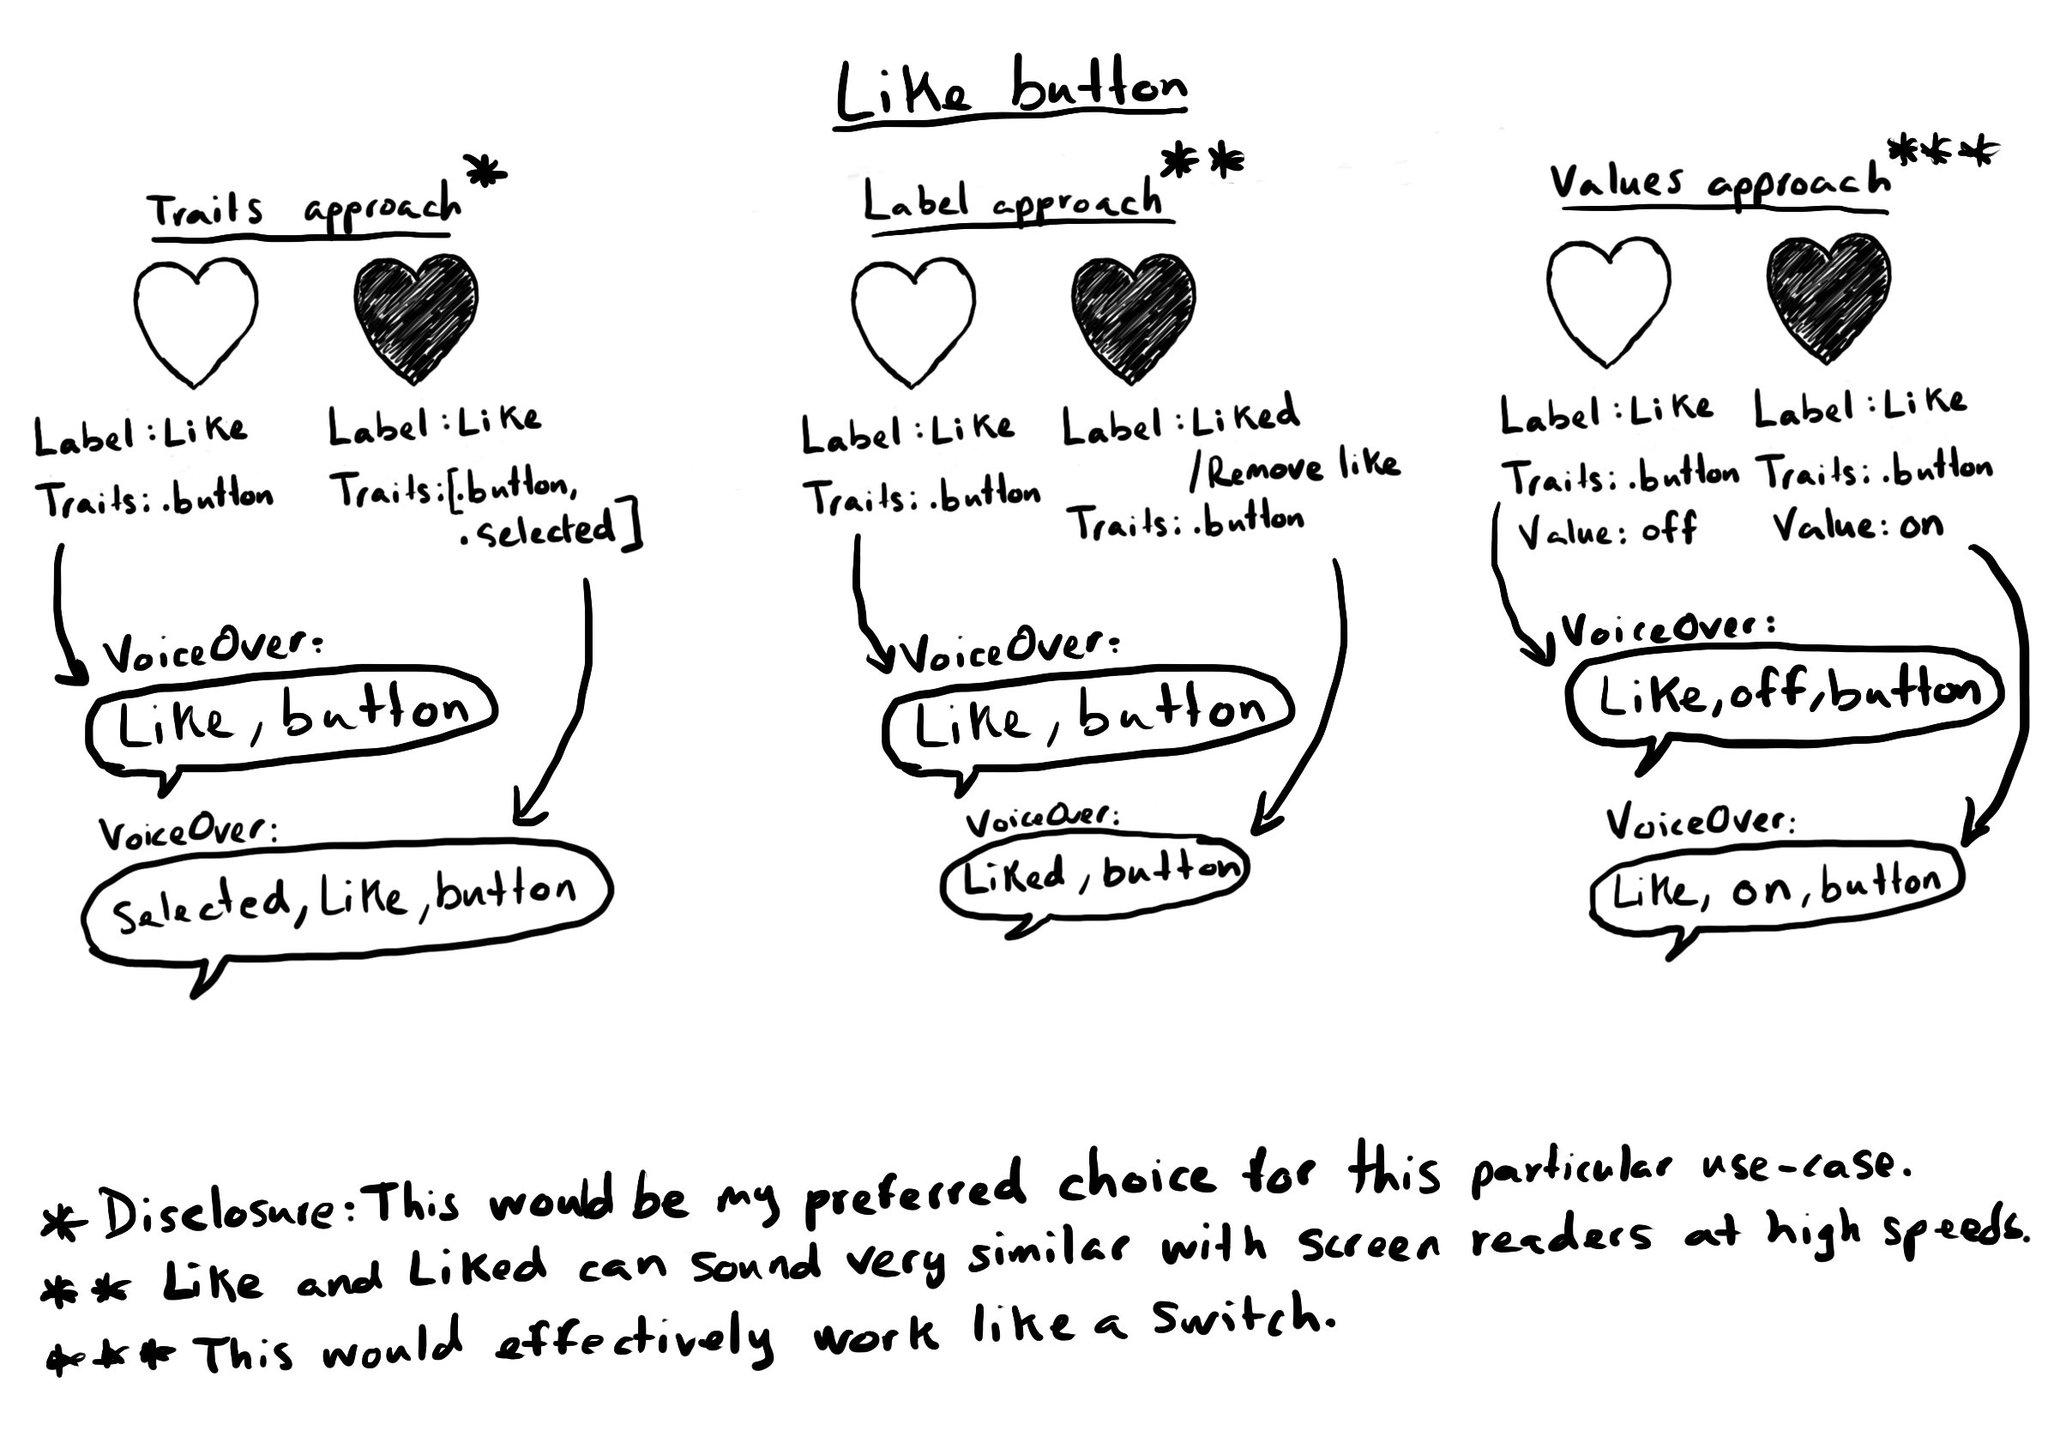 Like button
Traits approach *
Label: Like
Traits: .button
Label: Like
Traits: [.button,
.selected]
VoiceOver:
Like, button
VoiceOver:
Selected, Like, button
Label approach **
Label: Like
Traits: .button
Label: Liked
/Remove like
Traits: .button
VoiceOver:
Like, button
VoiceOver:
Liked, button
Values approach ***
Label: Like
Traits: .button
Value: off
Label: Like
Traits: .button
Value: on
VoiceOver:
Like, off, button
VoiceOver:
Like, on, button
* Disclosure: This would be my preferred choice for this particular use-case.
** Like and Liked can sound very similar with screen readers at high speeds.
*** This would effectively work like a switch.